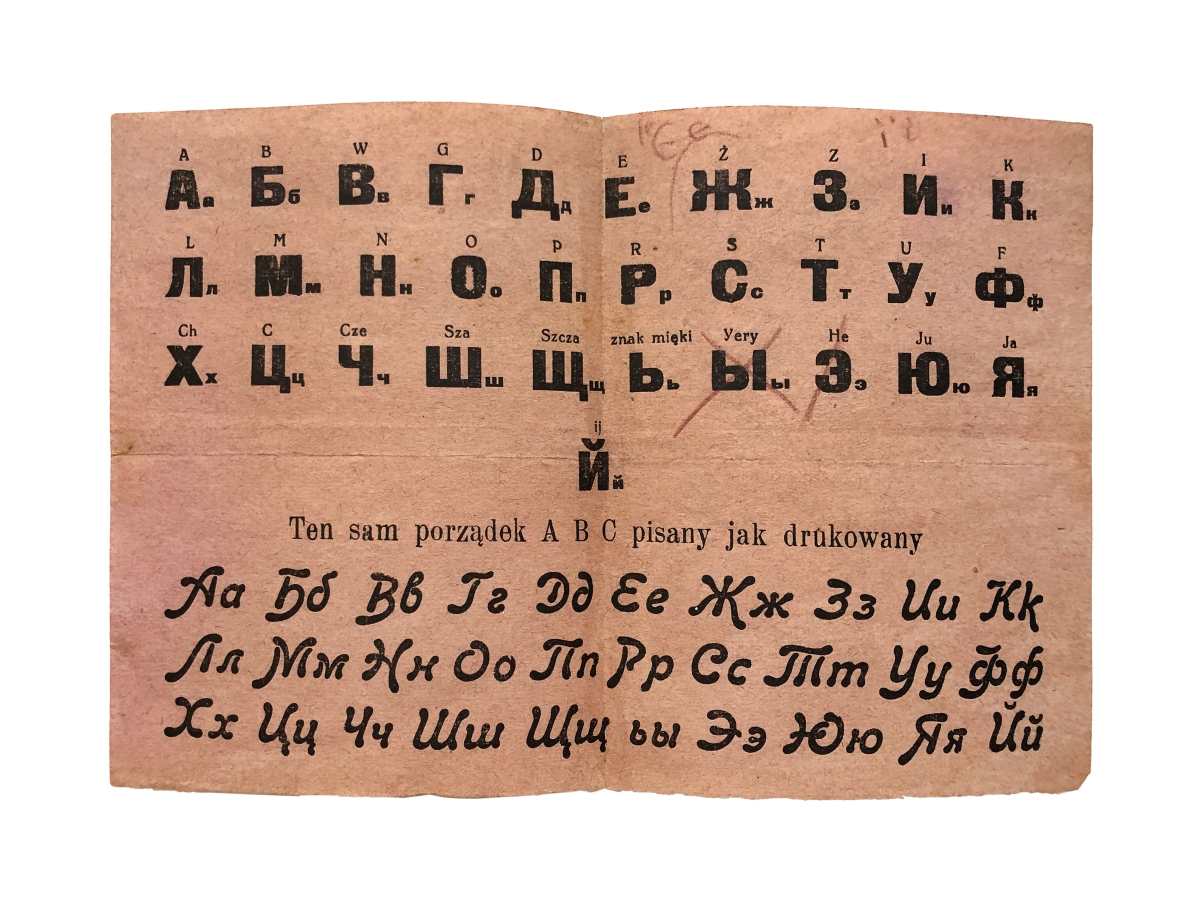 A B W G D E Ż Z I K
Аа Бб Вв Гг Дд Ее Жж Зз Ии Кк
L M N O P R S T U F
Лл Мм Нн Оо Пп Рр Сс Тт Уу Фф
Ch C Cze Sza Szcza znak mięki Yery He Ju Ja
Хх Цц Чч Шш Щщ Ьь Ыы Ээ Юю Яя
ij
Йй
Ten sam porządek A B C pisany jak drukowany
Аа Бб Вв Гг Дд Ее Жж Зз Ии Кк
Лл Мм Нн Оо Пп Рр Сс Тт Уу Фф
Хх Цц Чч Шш Щщ ьы Ээ Юю Яя Йй